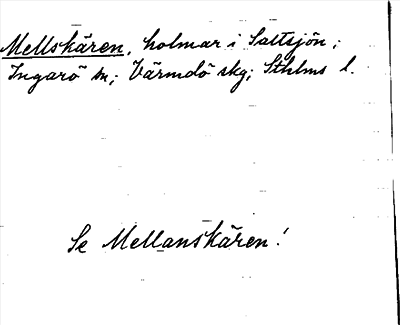 Mellskären, holmar i Saltsjön;
Ingarö sn; Värmdö skg; Sthlms l.
Se Mellanskären!